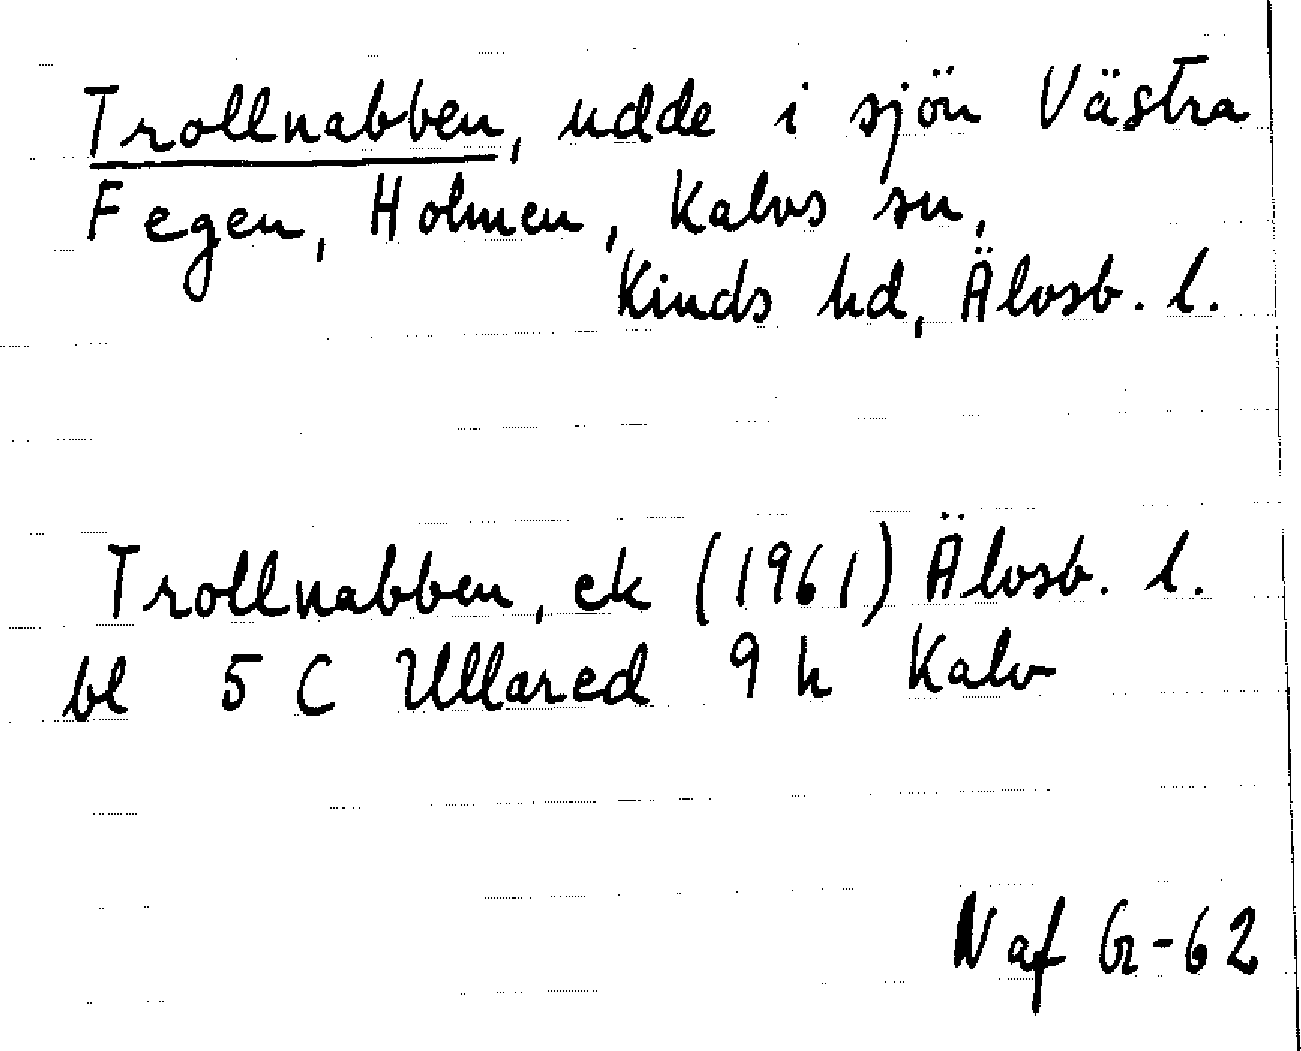 Trollnabben, udde i sjön Västra
Fegen, Holmen, Kalvs sn,
Kinds hd, Älvsb. l.
Trollnabben, ek (1961) Älvsb. l.
bl 5 C Ullared 9 h Kalv
N af Gr-62